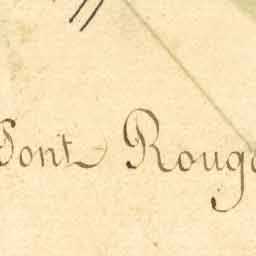 Pont Rouge